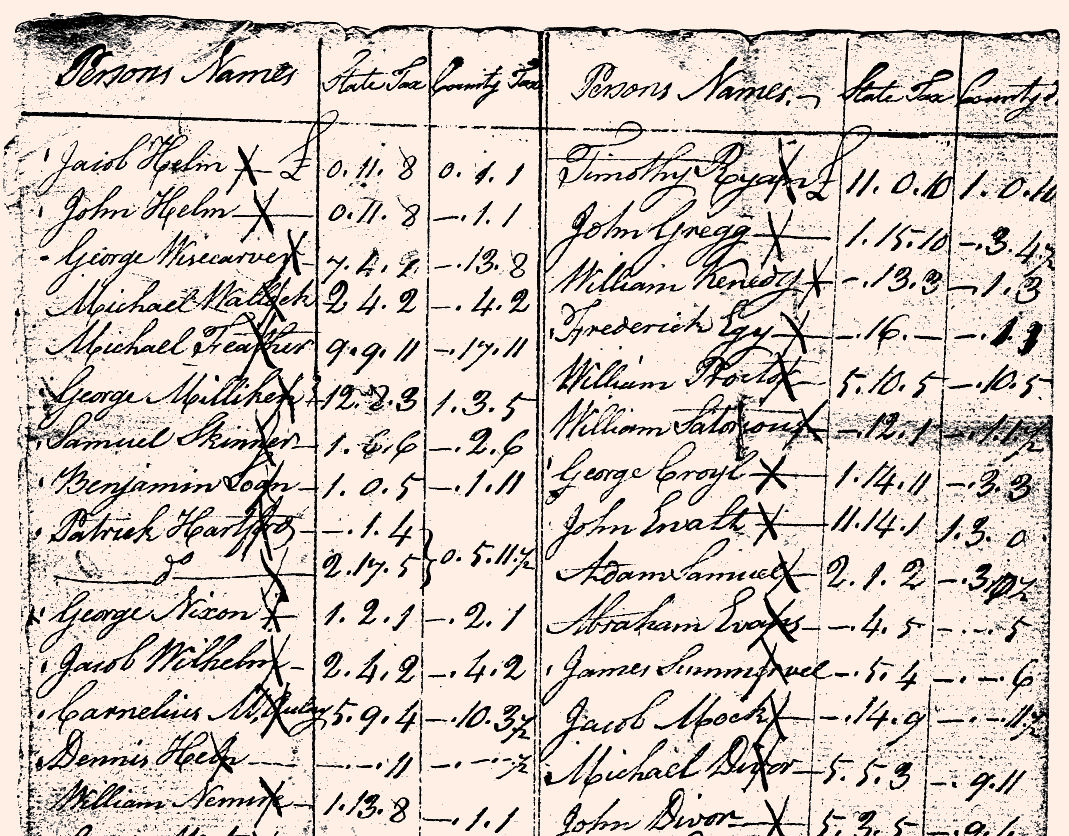 Persons Names State Tax County Tax
Jacob Helm £ 0.11.8 0.1.1
John Helm 0.11.8 —.1.1
George Wisecarver 7.4.2 —.13.8
Michael 2.4.2 —.4.2
Michael Feather 9.9.11 —.17.11
George Milliken 12.8.3 1.3.5
Samuel Skinner 1.6.6 —.2.6
Benjamin Logan 1.0.5 —.1.11
Patrick Hartford —.1.4
do 2.17.5 } 0.5.11½
George Nixon 1.2.1 —.2.1
Jacob Wilhelm 2.4.2 —.4.2
Carnelius 5.9.4 —.10.3½
Dennis Help —.—.11 —.—.—½
William 1.13.8 —.1.1
Persons Names. State Tax County
Timothy Ryan £ 11.0.10 1.0.10
John Gregg 1.15.10 —.3.4½
William Kenedy —.13.3 —.1.3
Frederick Egy —.16.— —.1.
William Proctor 5.10.5 —.10.5
William Satorious —.12.1 —.1.1½
George Croyl 1.14.11 —.3.3
John 11.14.1 1.3.0
Adam Samuel 2.1.2 —.3.
Abraham Evans —.4.5 —.—.5
James Summervel —.5.4 —.—.6
Jacob Mock —.14.9 —.—.11½
Michael Divor 5.5.3 —.9.11
John Divor 5.3.5 —.9.1